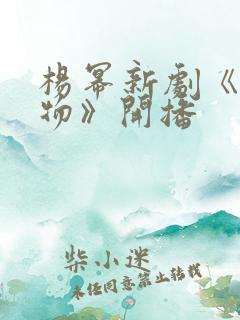 楊冪新劇《
物》開播
柴小迷
未經同意禁止轉載